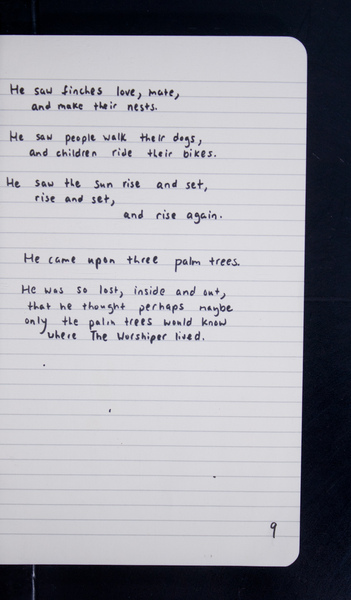 He saw finches love, mate,
and make their nests.
He saw people walk their dogs,
and children ride their bikes.
He saw the sun rise and set,
rise and set,
and rise again.
He came upon three palm trees.
He was so lost, inside and out,
that he thought perhaps maybe
only the palm trees would know
where The Worshiper lived.
9